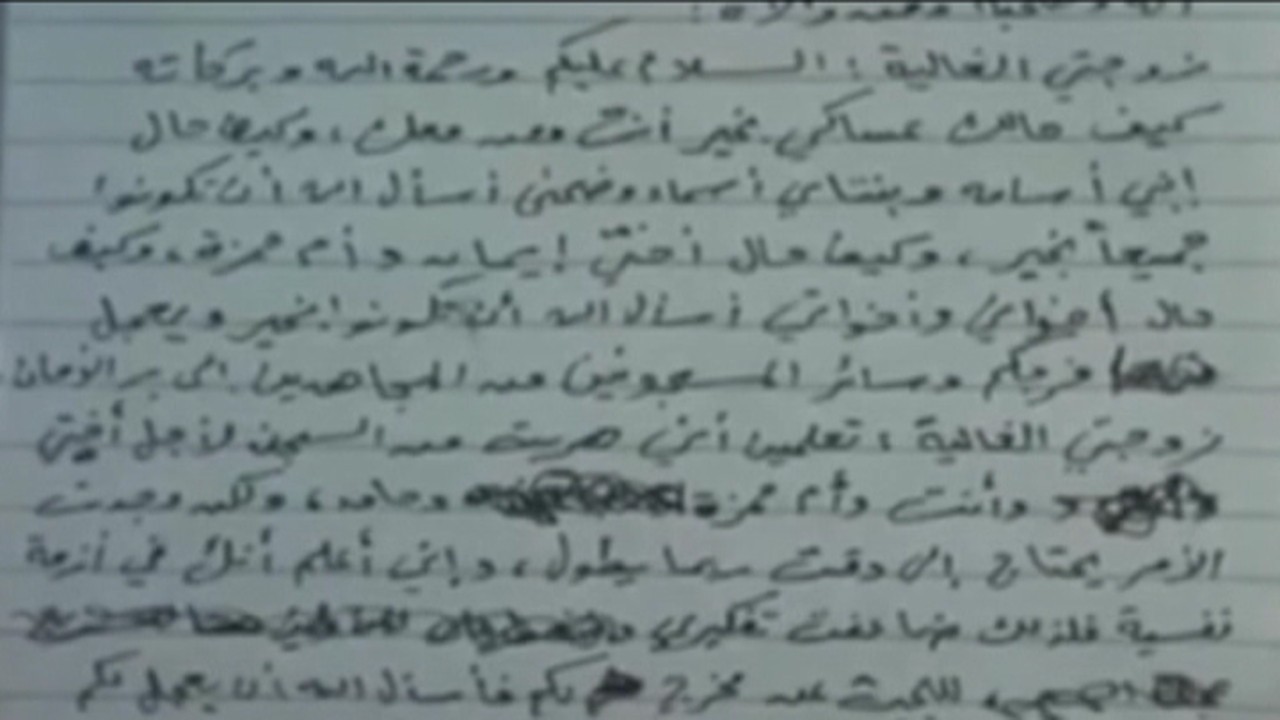 زوجتي الغالية : السلام عليكم ورحمة الله وبركاته
كيف حالك عساكي بخير أنت ومن معك ، وكيف حال
إبني أسامه وبنتاي أسماء وضحى أسأل الله أن تكونوا
جميعاً بخير ، وكيف حال أختي إيمان وأم حمزة ، وكيف
حال أخواي وأخواتي أسأل الله أن تكونوا بخير ويعجل
فرجكم وسائر المسجونين من المجاهدين الى بر الأمان
زوجتي الغالية ، تعلمين أني هربت من السجن لأجل أختي
وأنت وأم حمزة وحامد ، ولكن وجدت
الأمر يحتاج إلى وقت ربما يطول ، وإني أعلم أنك في أزمة
نفسية فلذلك تفكيري
للبحث عن مخرج لكم فأسأل الله أن يعجل لكم